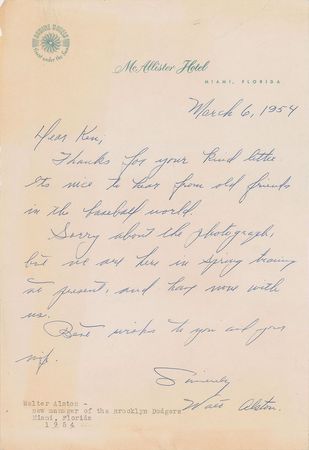 McAllister Hotel
MIAMI, FLORIDA
March 6, 1954
Dear Ken,
Thanks for your kind letter
Its nice to hear from old friends
in the baseball world.
Sorry about the photograph,
but we are here in Spring training
at present, and have none with
us.
Best wishes to you and your
wife.
Sincerely
Walt Alston.
Walter Alston -
new manager of the Brooklyn Dodgers
Miami, Florida
1954